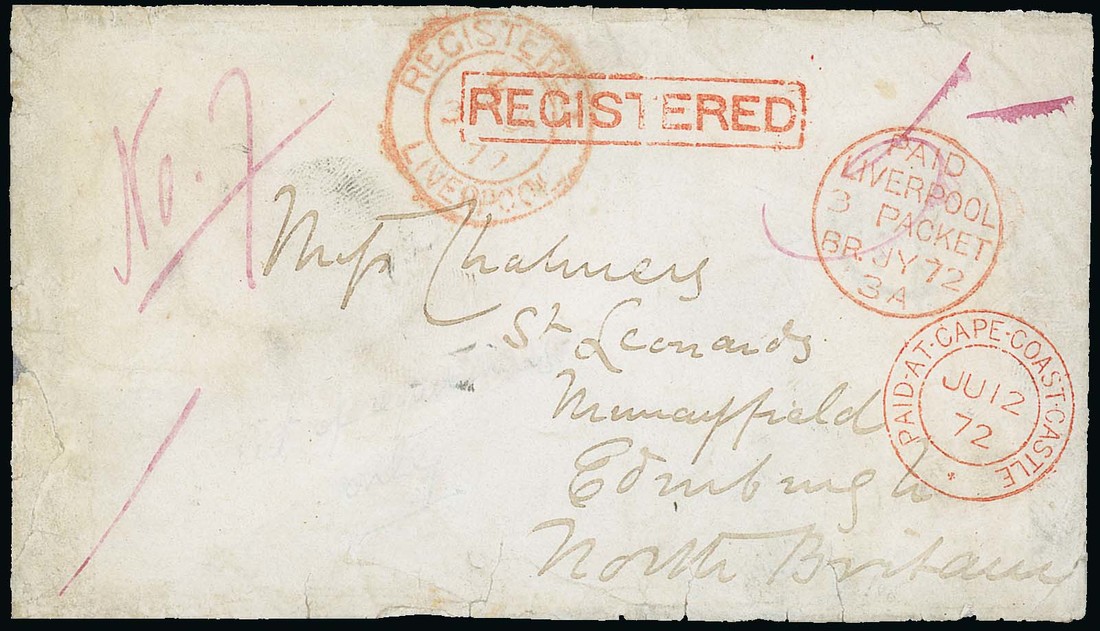 REGISTERED
LIVERPOOL
REGISTERED
No. 7
PAID
LIVERPOOL
3 PACKET
BR. JY 72
3A
Miss Chalmers
St Leonards
Murrayfield
Edinburgh
North Britain
PAID·AT·CAPE·COAST·CASTLE
JU 12
72